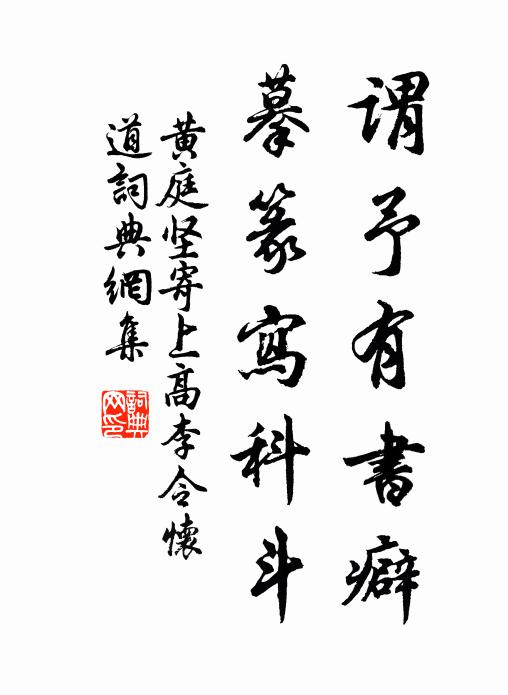 謂予有書癖
摹篆寫科斗
黄庭坚寄上高李令懷
道詞典網集
詞典网印